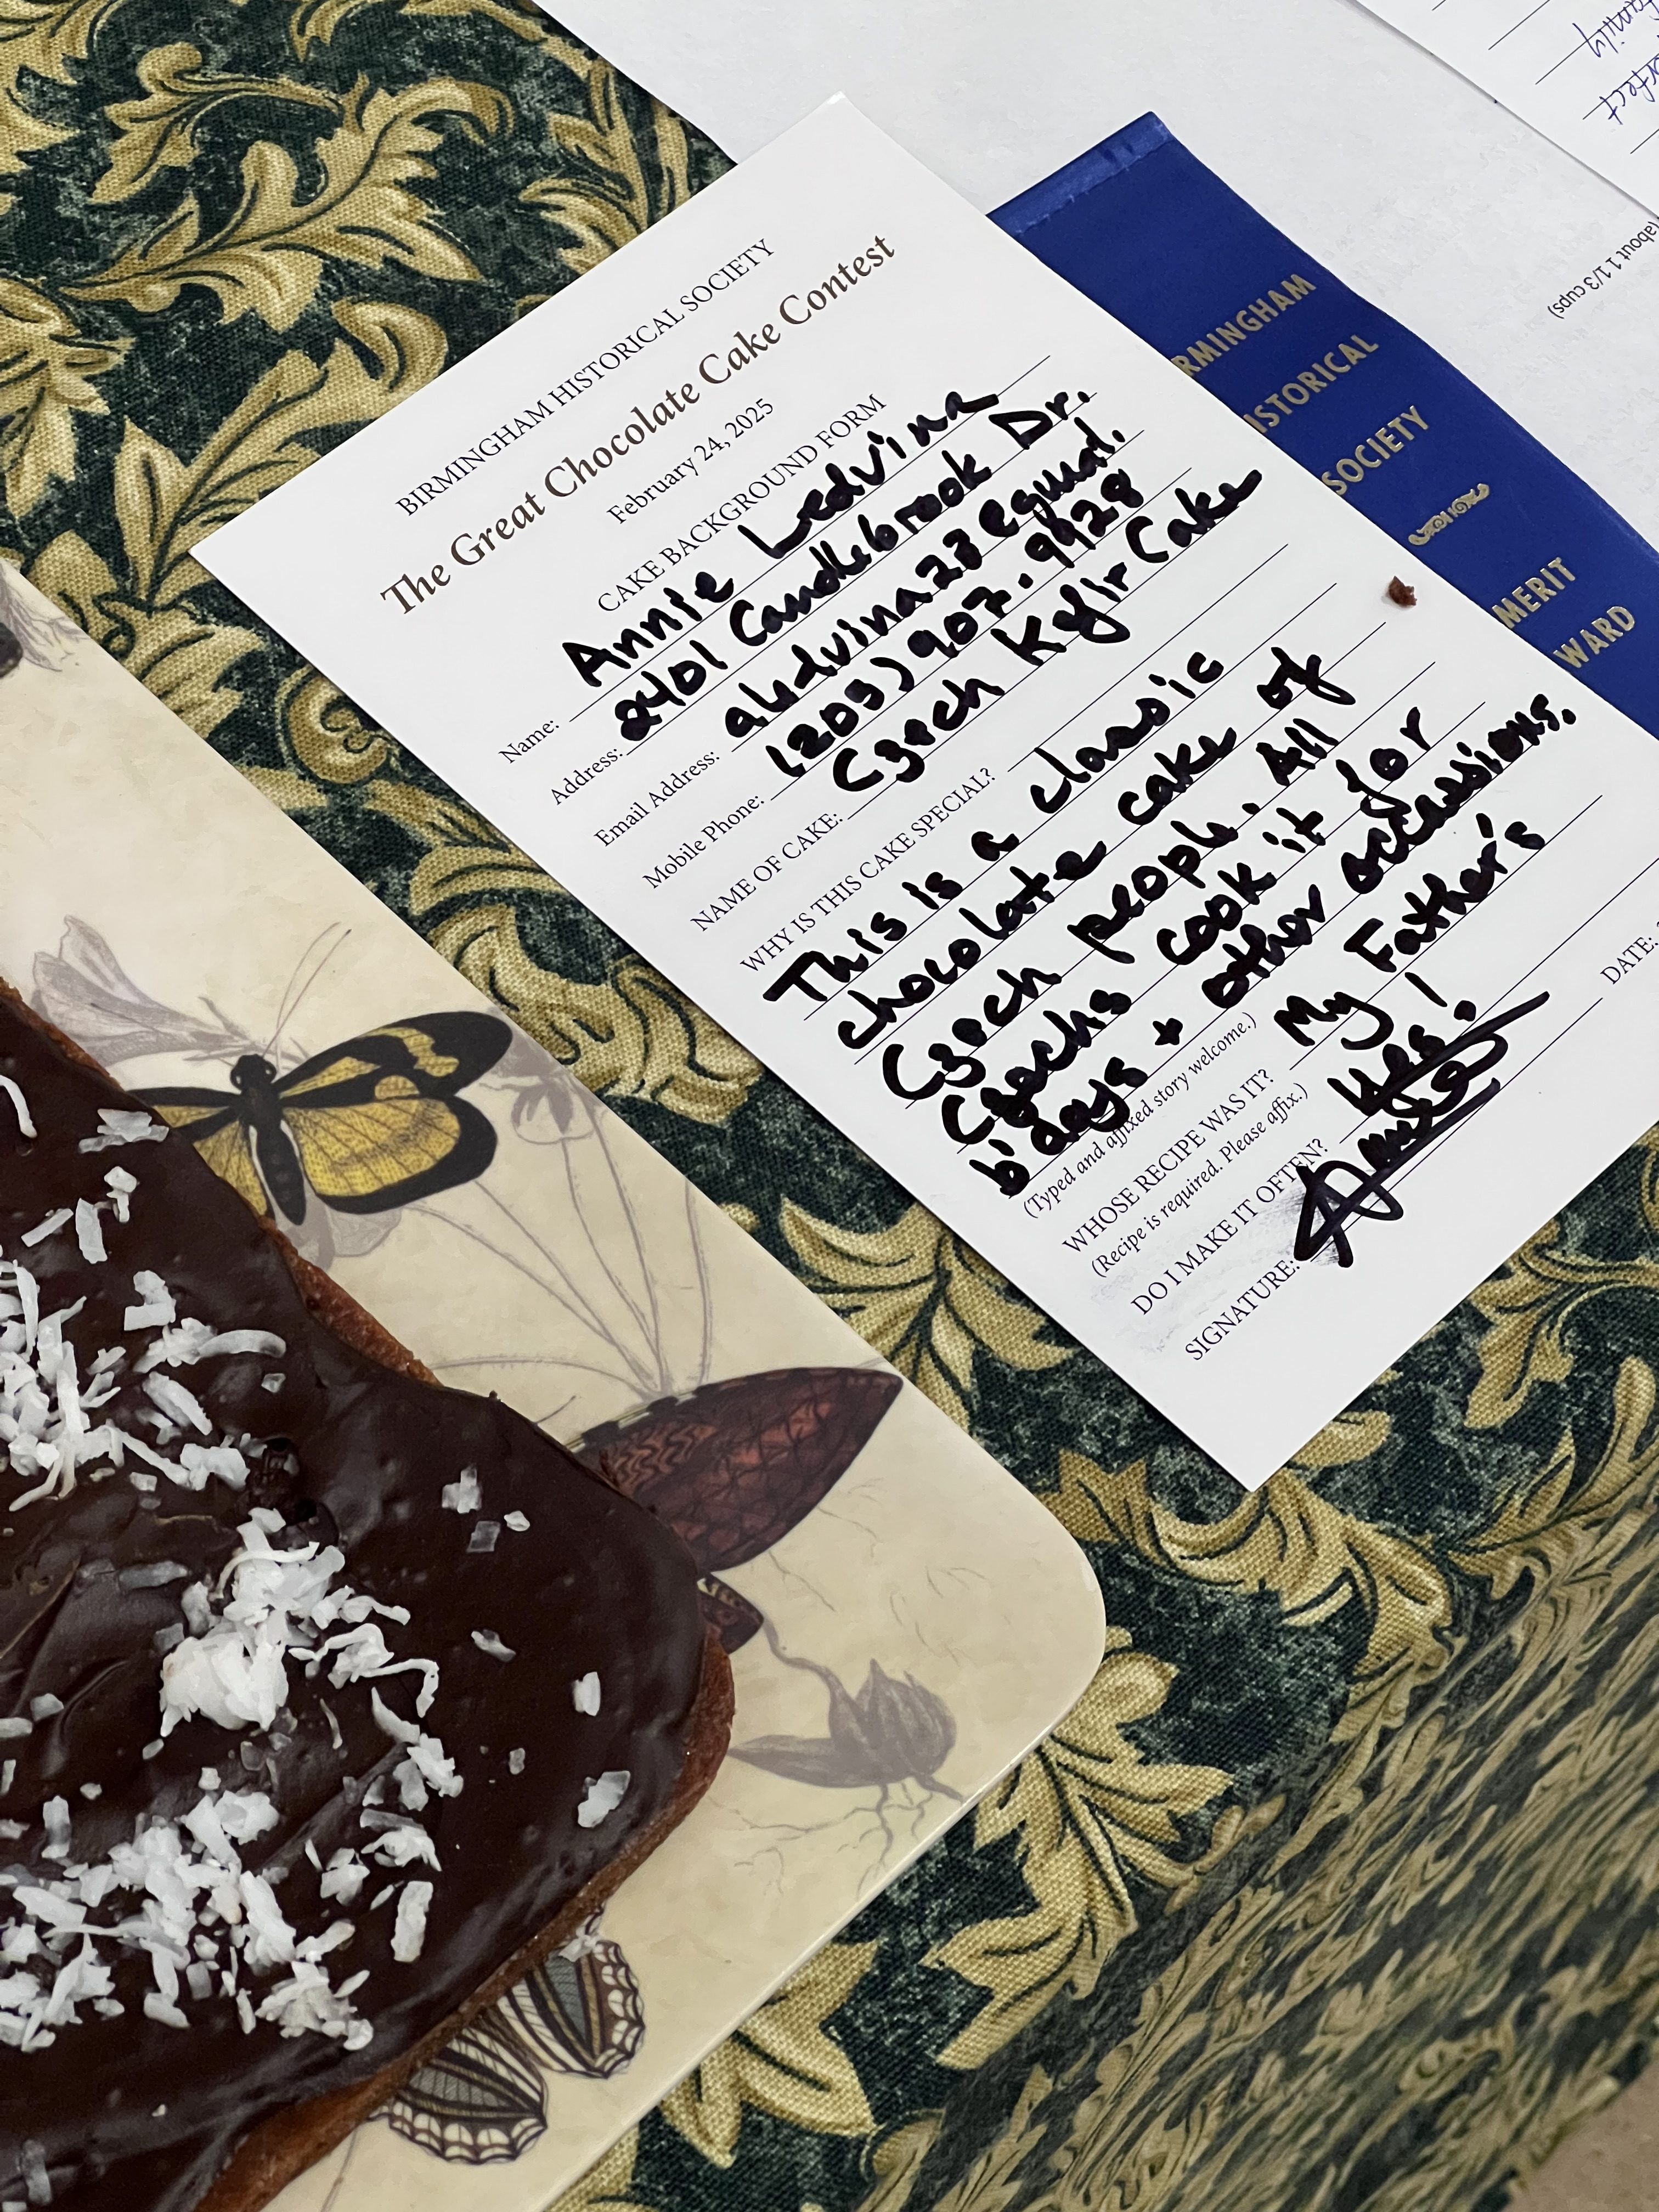 BIRMINGHAM HISTORICAL SOCIETY
The Great Chocolate Cake Contest
February 24, 2025
CAKE BACKGROUND FORM
Name: Annie Ledvina
Address: 2401 Candlebrook Dr.
Email Address: aledvina23@gmail.
Mobile Phone: (205) 907.9928
NAME OF CAKE: Czech Kefir Cake
WHY IS THIS CAKE SPECIAL?
This is a classic
chocolate cake of
Czech people. All
Czechs cook it for
b'days + other occassions.
(Typed and affixed story welcome.)
WHOSE RECIPE WAS IT? My Father's
(Recipe is required. Please affix.)
DO I MAKE IT OFTEN? Yes!
SIGNATURE:
DATE:
RMINGHAM
ISTORICAL
SOCIETY
MERIT
WARD
(about 1 1/3 cups)
family